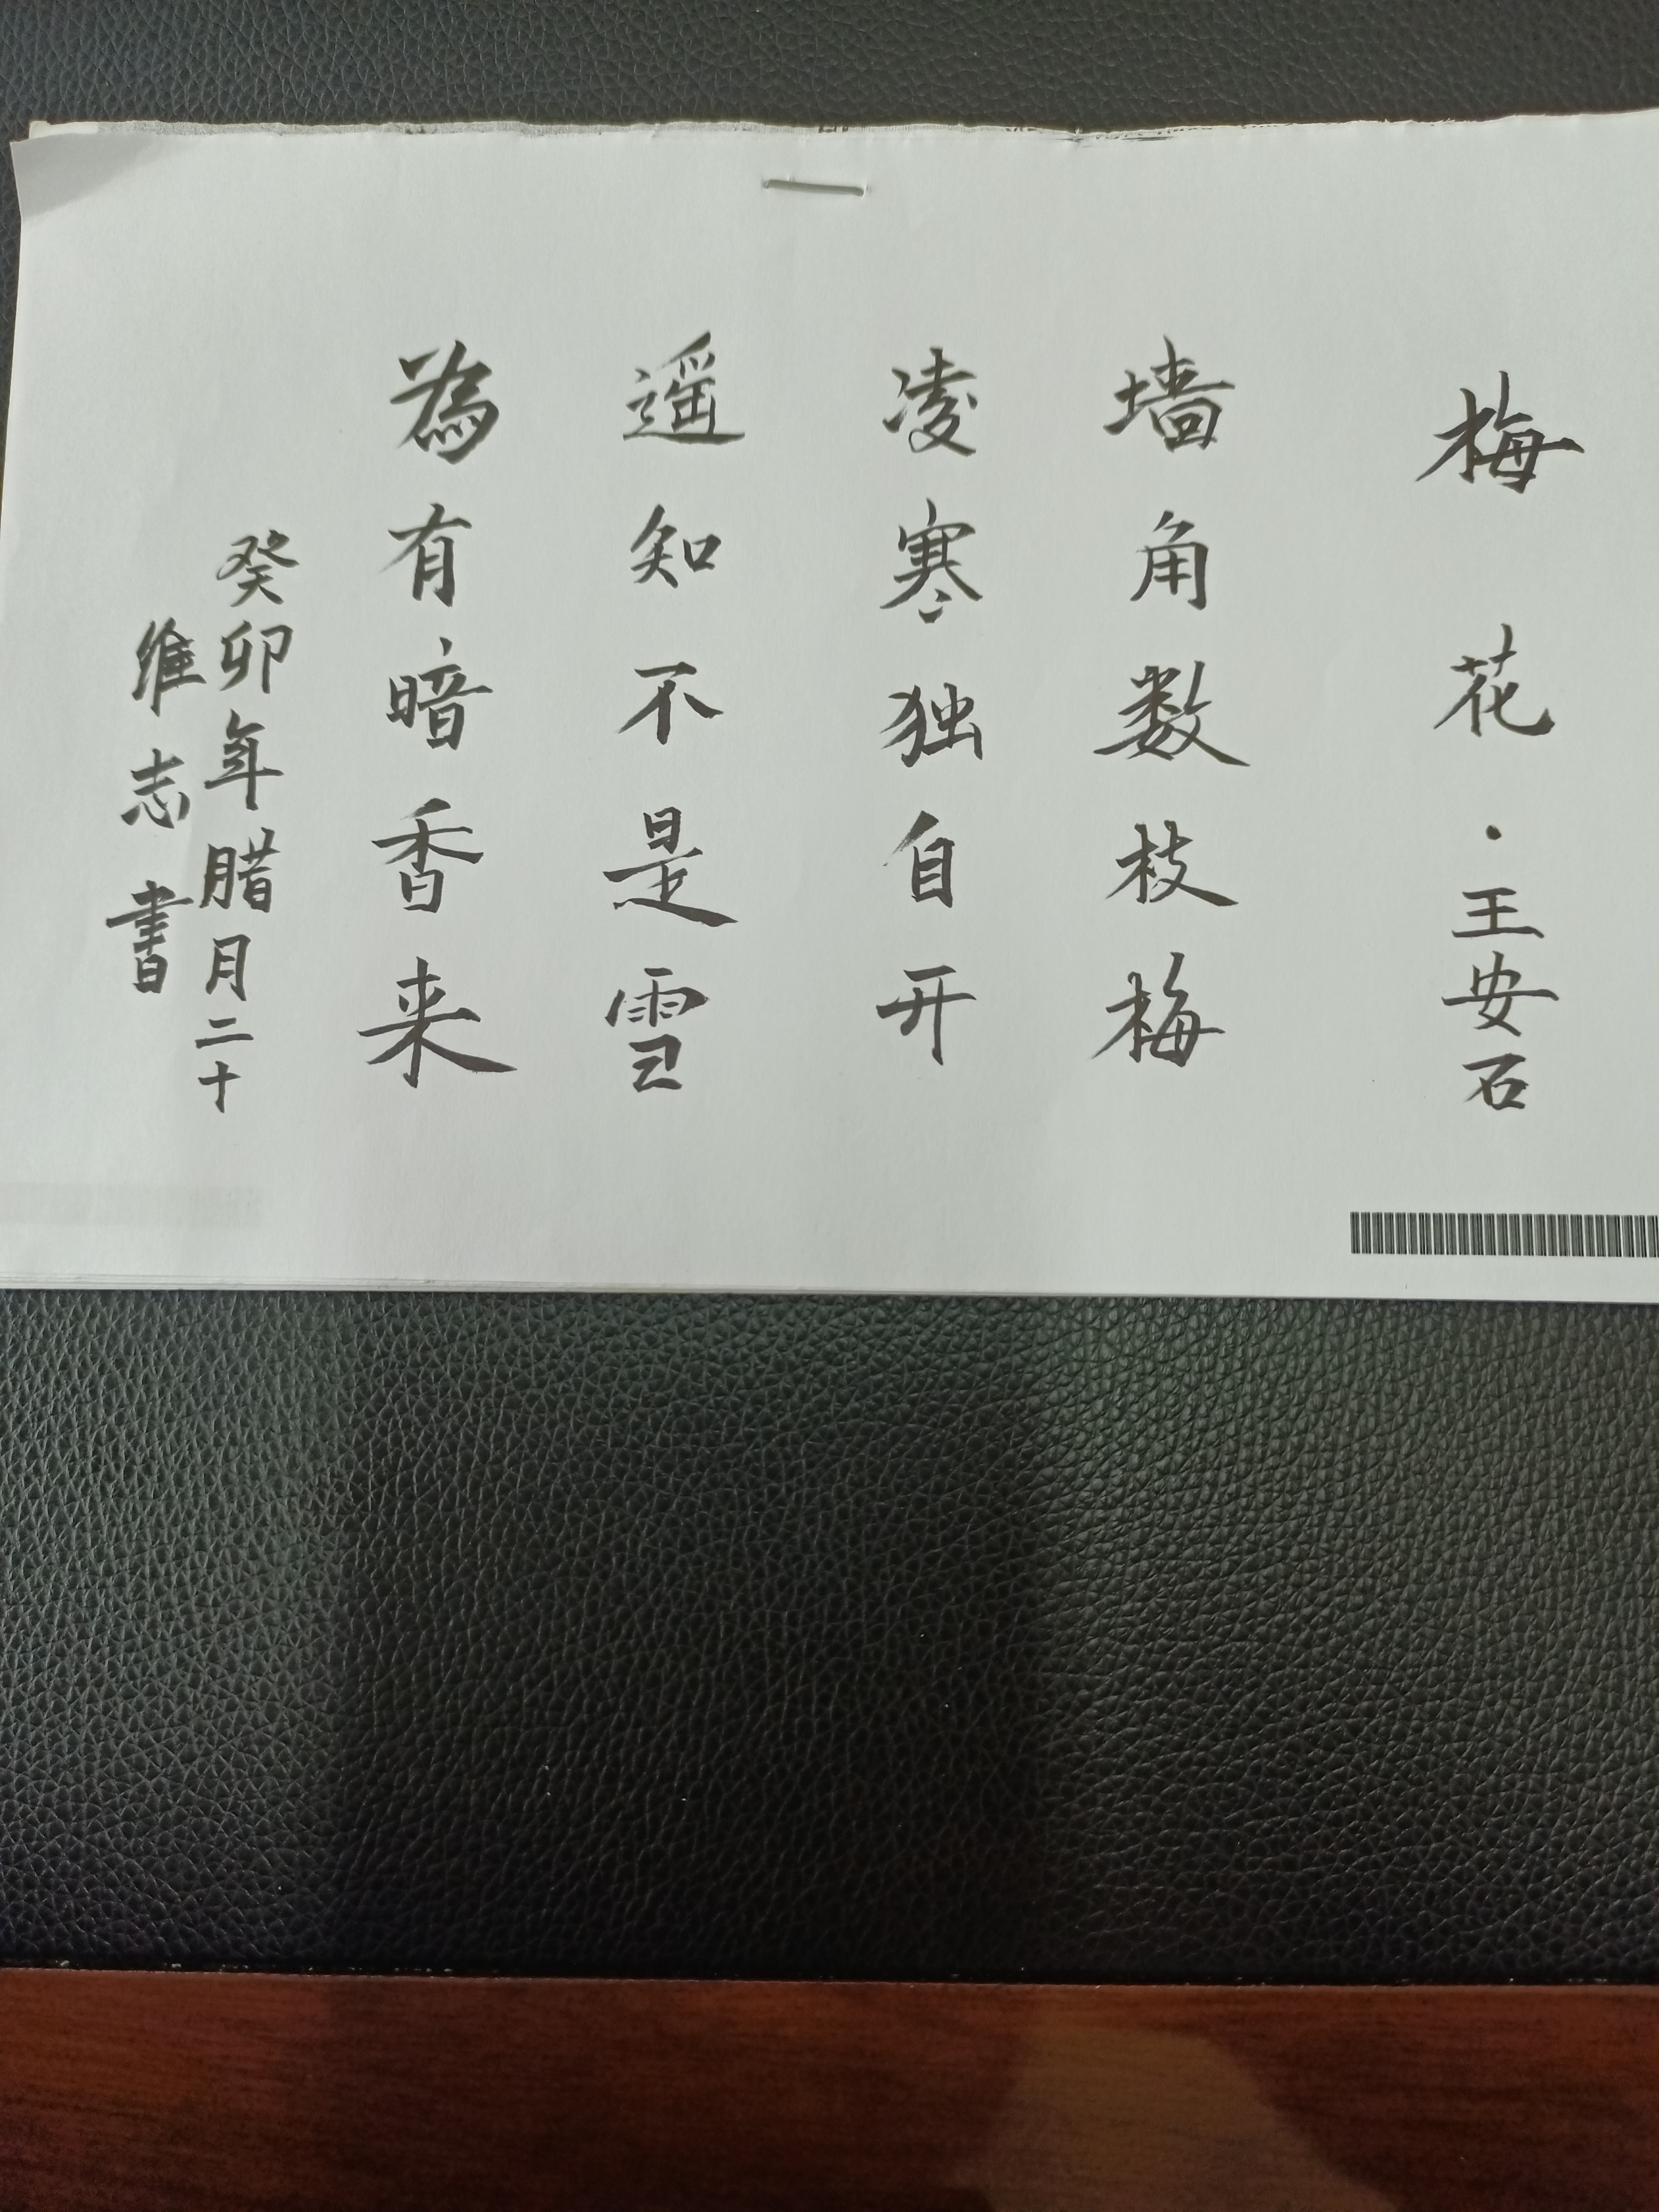 梅花·王安石
墙角数枝梅
凌寒独自开
遥知不是雪
為有暗香来
癸卯年腊月二十
维志書